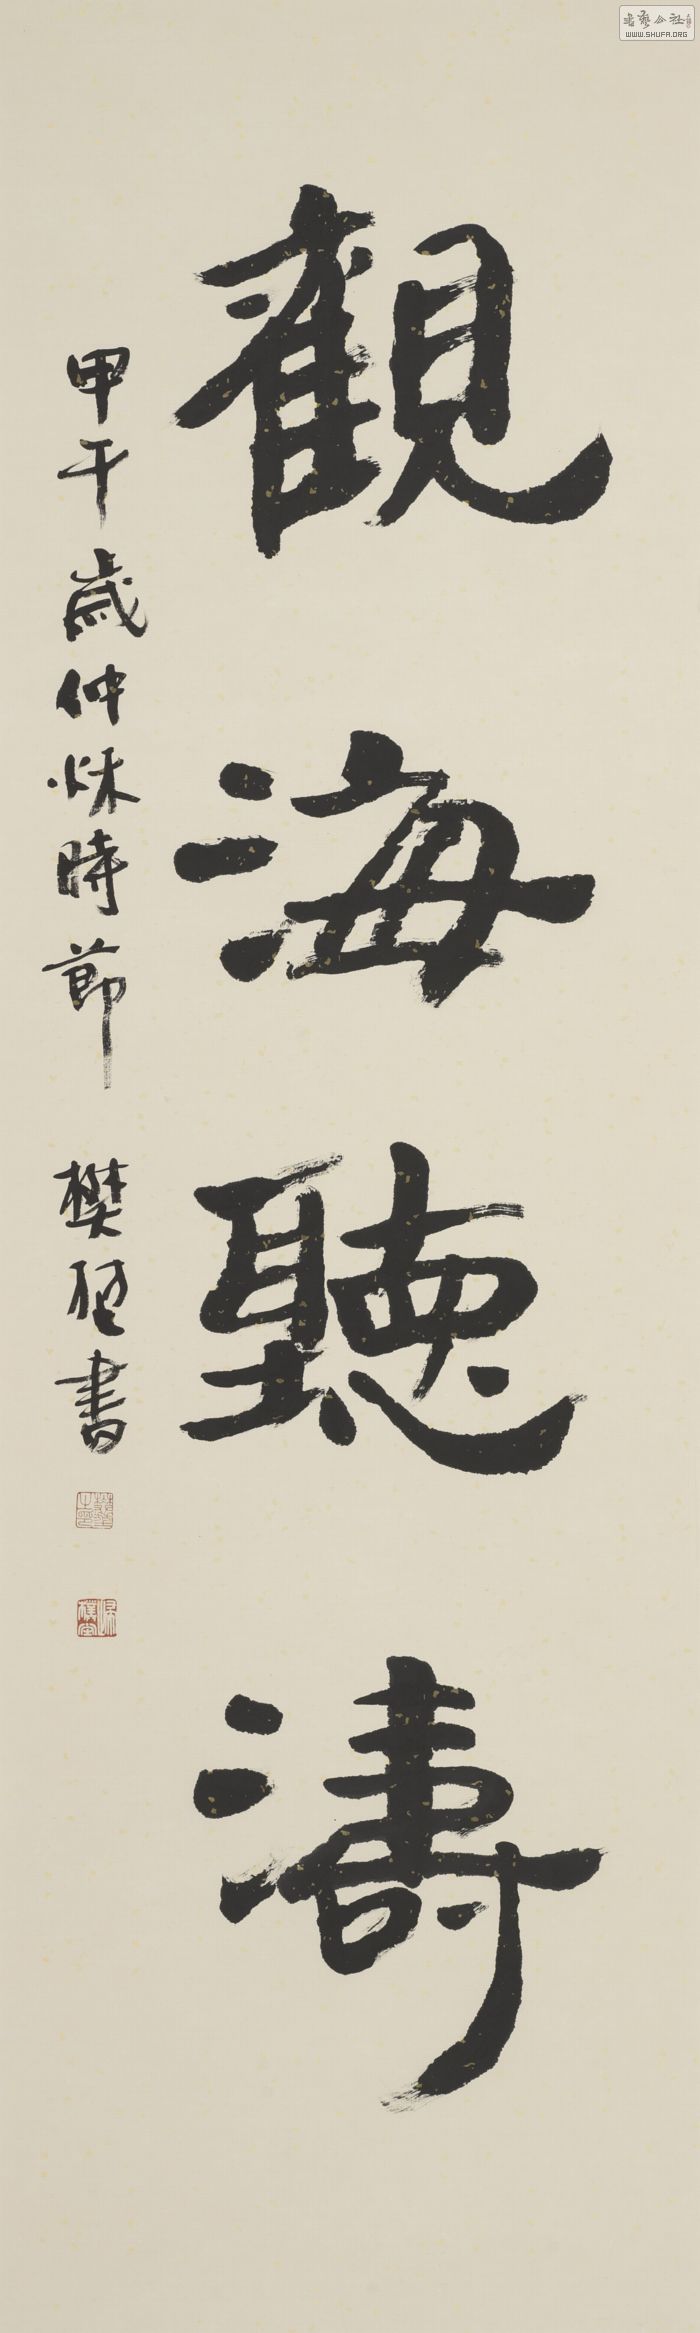 觀海聽濤
甲午歲仲秌時節 樊堃書
書藝公社
WWW.SHUFA.ORG